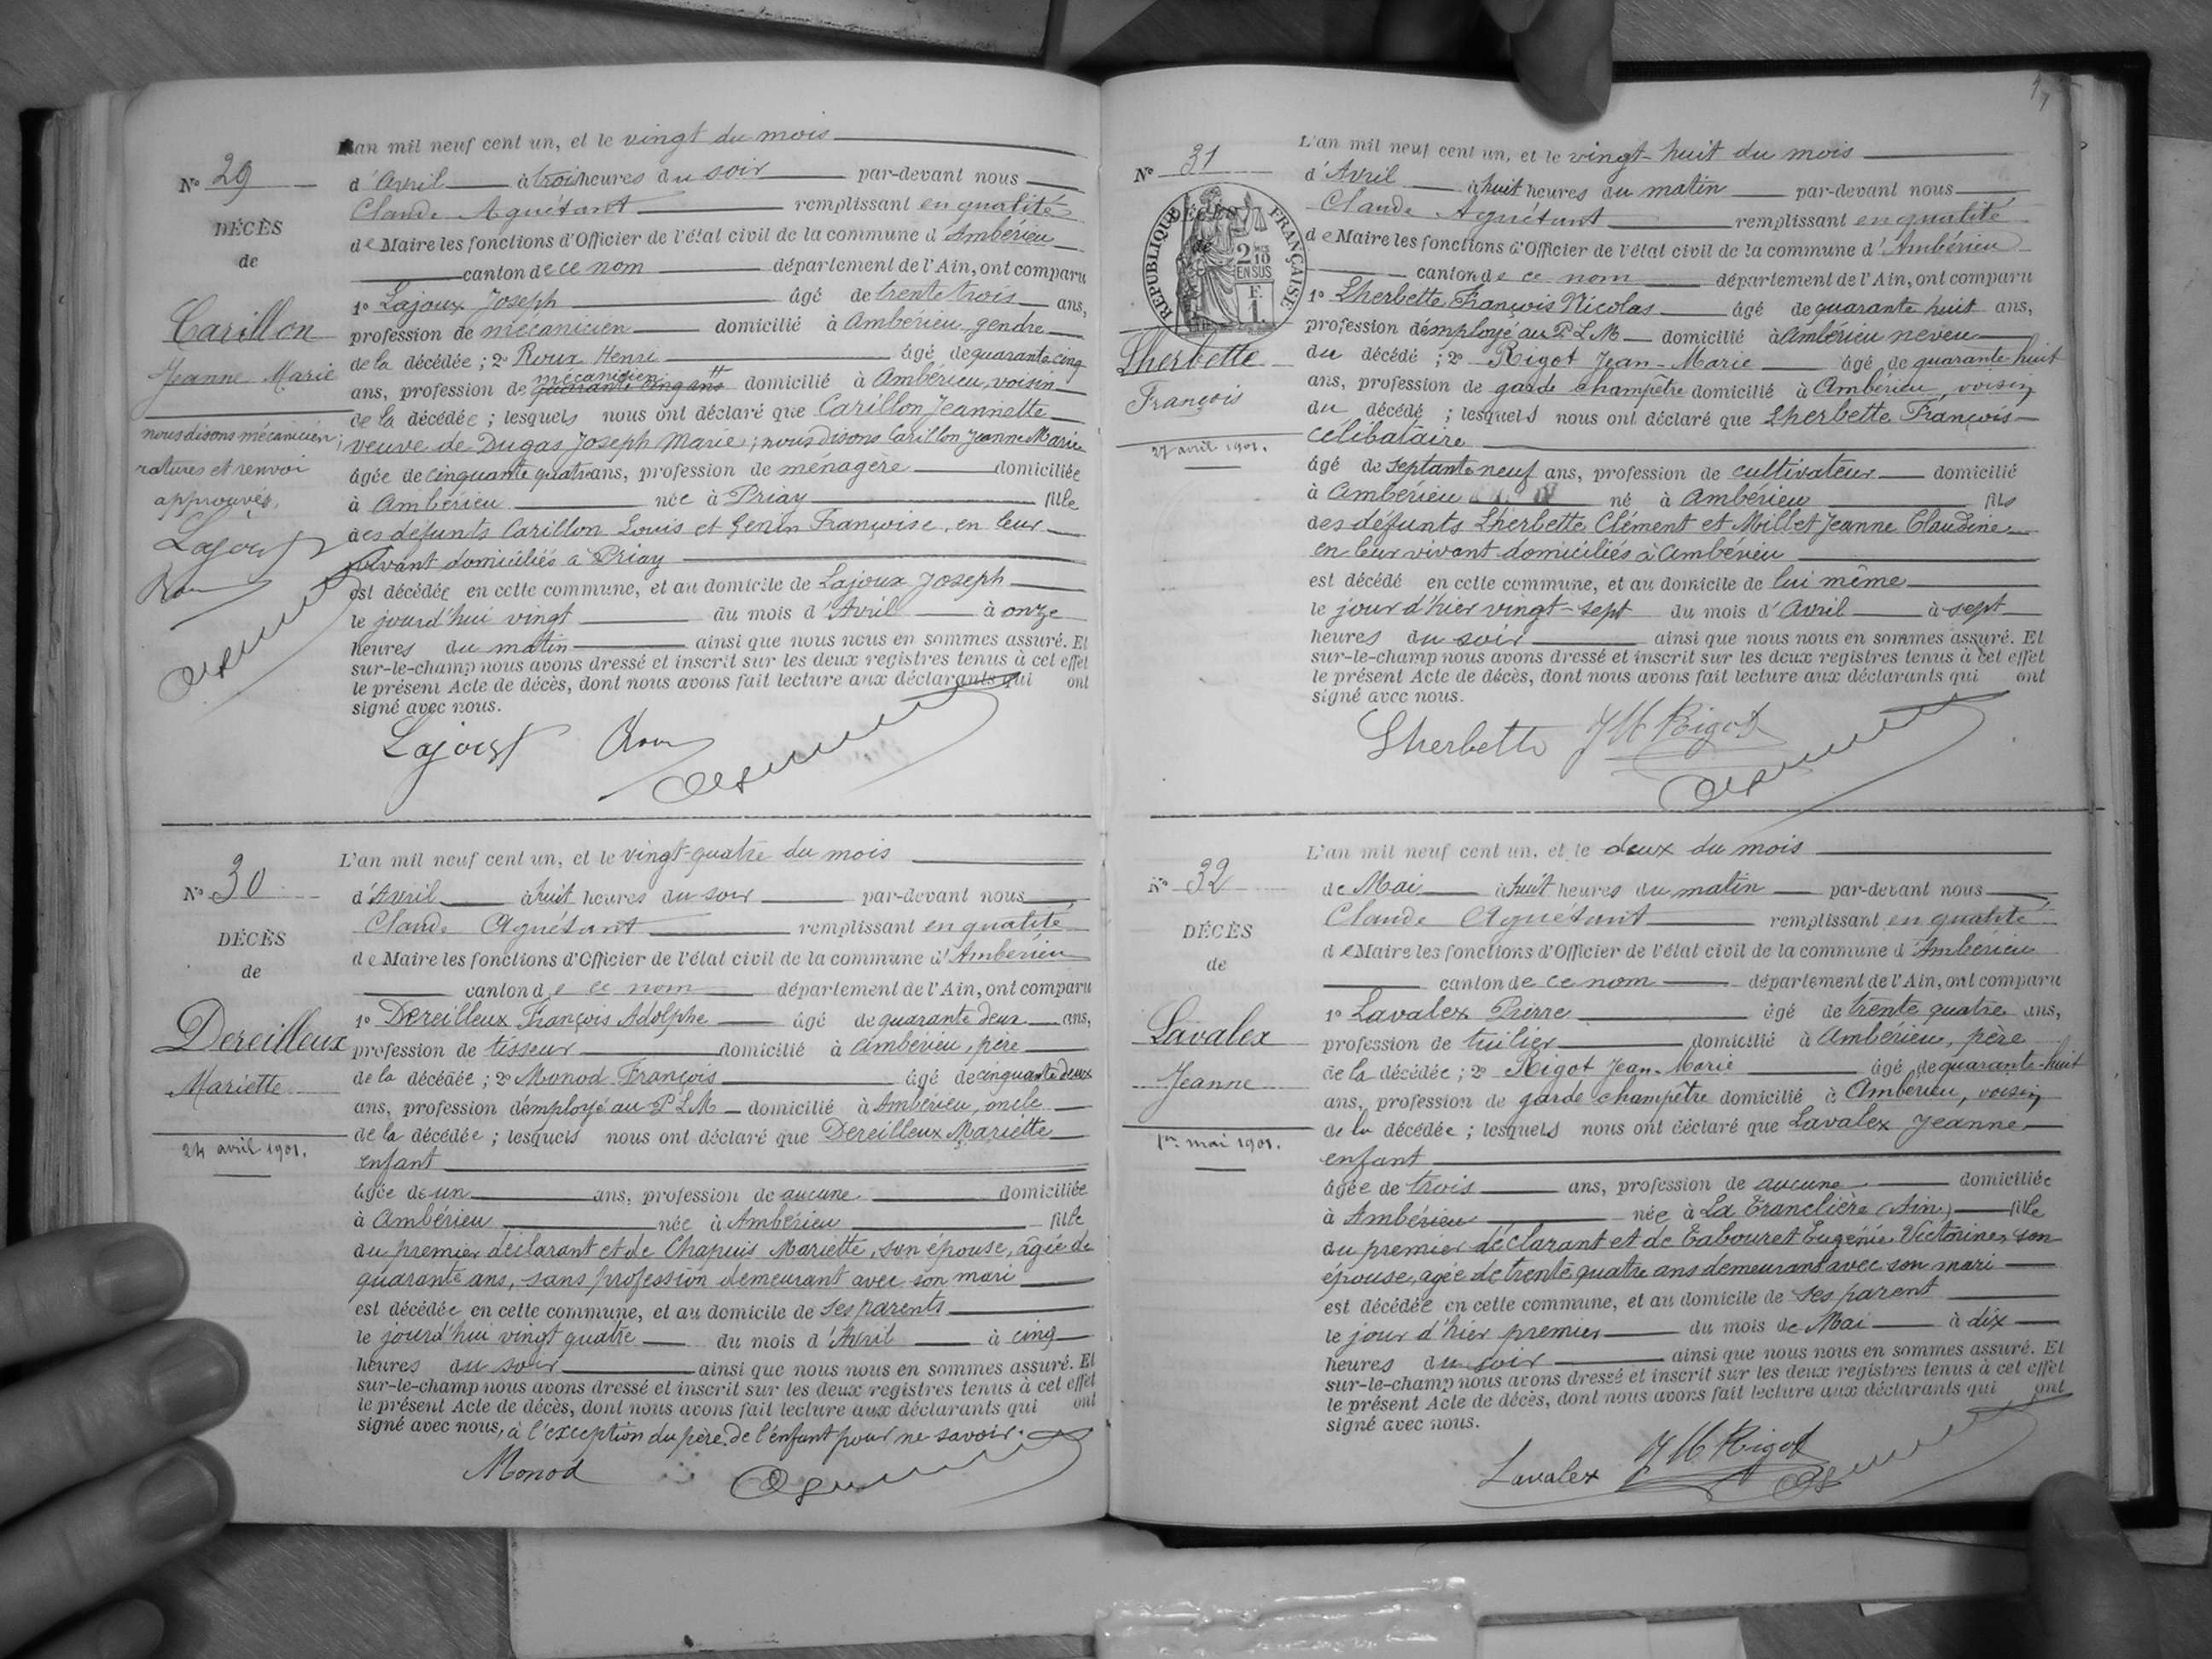 L'an mil neuf cent un, et le vingt du mois
N° 29
d'Avril à trois heures du soir par-devant nous
DÉCÈS
Claude Aguétant remplissant en qualité
de
de Maire les fonctions d'Officier de l'état civil de la commune d'Ambérieu
canton de ce nom département de l'Ain, ont comparu
Carillon
Jeanne Marie
1° Lajoux Joseph âgé de trente trois ans,
profession de mécanicien domicilié à Ambérieu, gendre
de la décédée ; 2° Roux Henri âgé de quarante cinq
mécanicien
ans, profession de quarante cinq ans domicilié à Ambérieu, voisin
de la décédée ; lesquels nous ont déclaré que Carillon Jeannette
nous disons mécanicien ;
ratures et renvoi
approuvés.
veuve de Dugas Joseph Marie ; nous disons Carillon Jeanne Marie
âgée de cinquante quatre ans, profession de ménagère domiciliée
à Ambérieu née à Priay fille
des défunts Carillon Louis et Genin Françoise, en leur
vivant domiciliés à Priay
est décédée en cette commune, et au domicile de Lajoux Joseph
le jourd'hui vingt du mois d'Avril à onze
heures du matin ainsi que nous nous en sommes assuré. Et
sur-le-champ nous avons dressé et inscrit sur les deux registres tenus à cet effet
le présent Acte de décès, dont nous avons fait lecture aux déclarants qui ont
signé avec nous.
L'an mil neuf cent un, et le vingt-quatre du mois
N° 30
d'Avril à huit heures du soir par-devant nous
DÉCÈS
Claude Aguétant remplissant en qualité
de
de Maire les fonctions d'Officier de l'état civil de la commune d'Ambérieu
canton de ce nom département de l'Ain, ont comparu
Dereilleux
Mariette
24 avril 1901.
1° Dereilleux François Adolphe âgé de quarante deux ans,
profession de tisseur domicilié à Ambérieu, père
de la décédée ; 2° Monod François âgé de cinquante deux
ans, profession d'employé au P L M domicilié à Ambérieu, oncle
de la décédée ; lesquels nous ont déclaré que Dereilleux Mariette
enfant
âgée de un ans, profession de aucune domiciliée
à Ambérieu née à Ambérieu fille
du premier déclarant et de Chapuis Mariette, son épouse, âgée de
quarante ans, sans profession demeurant avec son mari
est décédée en cette commune, et au domicile de ses parents
le jourd'hui vingt quatre du mois d'Avril à cinq
heures du soir ainsi que nous nous en sommes assuré. Et
sur-le-champ nous avons dressé et inscrit sur les deux registres tenus à cet effet
le présent Acte de décès, dont nous avons fait lecture aux déclarants qui ont
signé avec nous, à l'exception du père de l'enfant pour ne savoir.
Monod
L'an mil neuf cent un, et le vingt-huit du mois
N° 31
d'Avril à huit heures du matin par-devant nous
DÉCÈS
RÉPUBLIQUE FRANÇAISE
2/10 EN SUS
F. 1.
Claude Aguétant remplissant en qualité
de Maire les fonctions d'Officier de l'état civil de la commune d'Ambérieu
canton de ce nom département de l'Ain, ont comparu
Lherbette
François
27 avril 1901.
1° Lherbette François Nicolas âgé de quarante huit ans,
profession d'employé au P L M domicilié à Ambérieu neveu
du décédé ; 2° Rigot Jean-Marie âgé de quarante-huit
ans, profession de garde champêtre domicilié à Ambérieu, voisin
du décédé ; lesquels nous ont déclaré que Lherbette François
célibataire
âgé de septante neuf ans, profession de cultivateur domicilié
à Ambérieu né à Ambérieu fils
des défunts Lherbette Clément et Millet Jeanne Claudine
en leur vivant domiciliés à Ambérieu
est décédé en cette commune, et au domicile de lui même
le jour d'hier vingt-sept du mois d'Avril à sept
heures du soir ainsi que nous nous en sommes assuré. Et
sur-le-champ nous avons dressé et inscrit sur les deux registres tenus à cet effet
le présent Acte de décès, dont nous avons fait lecture aux déclarants qui ont
signé avec nous.
Lherbette J M Rigot
L'an mil neuf cent un, et le deux du mois
N° 32
de Mai à huit heures du matin par-devant nous
DÉCÈS
Claude Aguétant remplissant en qualité
de
de Maire les fonctions d'Officier de l'état civil de la commune d'Ambérieu
canton de ce nom département de l'Ain, ont comparu
Lavalex
Jeanne
1er mai 1901.
1° Lavalex Pierre âgé de trente quatre ans,
profession de tuilier domicilié à Ambérieu, père
de la décédée ; 2° Rigot Jean-Marie âgé de quarante-huit
ans, profession de garde champêtre domicilié à Ambérieu, voisin
de la décédée ; lesquels nous ont déclaré que Lavalex Jeanne
enfant
âgée de trois ans, profession de aucune domiciliée
à Ambérieu née à La Tranclière (Ain) fille
du premier déclarant et de Tabouret Eugénie Victorine, son
épouse, agée de trente quatre ans demeurant avec son mari
est décédée en cette commune, et au domicile de ses parent
le jour d'hier premier du mois de Mai à dix
heures du soir ainsi que nous nous en sommes assuré. Et
sur-le-champ nous avons dressé et inscrit sur les deux registres tenus à cet effet
le présent Acte de décès, dont nous avons fait lecture aux déclarants qui ont
signé avec nous.
Lavalex J M Rigot